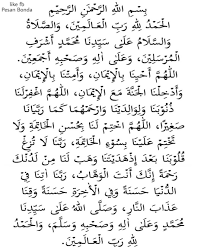 like fb
Pesan Bonda
بِسْمِ اللهِ الرَّحْمٰنِ الرَّحِيْمِ
الْحَمْدُ لِلّٰهِ رَبِّ الْعَالَمِيْنَ، وَالصَّلَاةُ
وَالسَّلَامُ عَلَى سَيِّدِنَا مُحَمَّدٍ أَشْرَفِ
الْمُرْسَلِيْنَ، وَعَلَى اٰلِهِ وَصَحْبِهِ أَجْمَعِيْنَ.
اَللّٰهُمَّ أَحْيِنَا بِالْإِيْمَانِ، وَأَمِتْنَا بِالْإِيْمَانِ،
وَأَدْخِلْنَا الْجَنَّةَ مَعَ الْإِيْمَانِ، اَللّٰهُمَّ اغْفِرْلَنَا
ذُنُوْبَنَا وَلِوَالِدَيْنَا وَارْحَمْهُمَا كَمَا رَبَّيَانَا
صَغِيْرًا، اَللّٰهُمَّ اخْتِمْ لَنَا بِحُسْنِ الْخَاتِمَةِ وَلَا
تَخْتِمْ عَلَيْنَا بِسُوْءِ الْخَاتِمَةِ، رَبَّنَا لَا تُزِغْ
قُلُوْبَنَا بَعْدَ إِذْهَدَيْتَنَا وَهَبْ لَنَا مِنْ لَدُنْكَ
رَحْمَةً إِنَّكَ أَنْتَ الْوَهَّابُ، رَبَّنَا اٰتِنَا فِيْ
الدُّنْيَا حَسَنَةً وَفِيْ الْأٰخِرَةِ حَسَنَةً وَقِنَا
عَذَابَ النَّارِ، وَصَلَّى اللهُ عَلَى سَيِّدِنَا
مُحَمَّدٍ وَعَلَى اٰلِهِ وَصَحْبِهِ وَسَلَّمَ، وَالْحَمْدُ
لِلّٰهِ رَبِّ الْعَالَمِيْنَ.